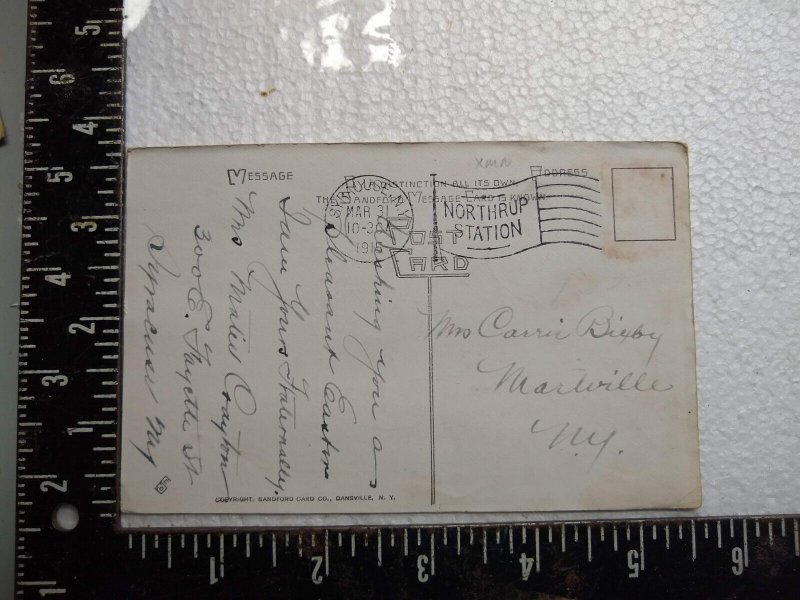 MESSAGE
ADDRESS
xmn
OF A DISTINCTION ALL ITS OWN
THE SANDFORD MESSAGE CARD IS KNOWN
POST
CARD
MAR 31
10-30
191
NORTHRUP
STATION
Wishing you a
pleasant Easter
I am Yours Fraternally.
Mrs Crayton
300 E. Fayette St
Syracuse NY
Mrs Carrie Bixby
Martville
N.Y.
COPYRIGHT. SANDFORD CARD CO., DANSVILLE, N. Y.
5
4
3
2
1
6
5
4
3
2
1
1
2
3
4
5
6